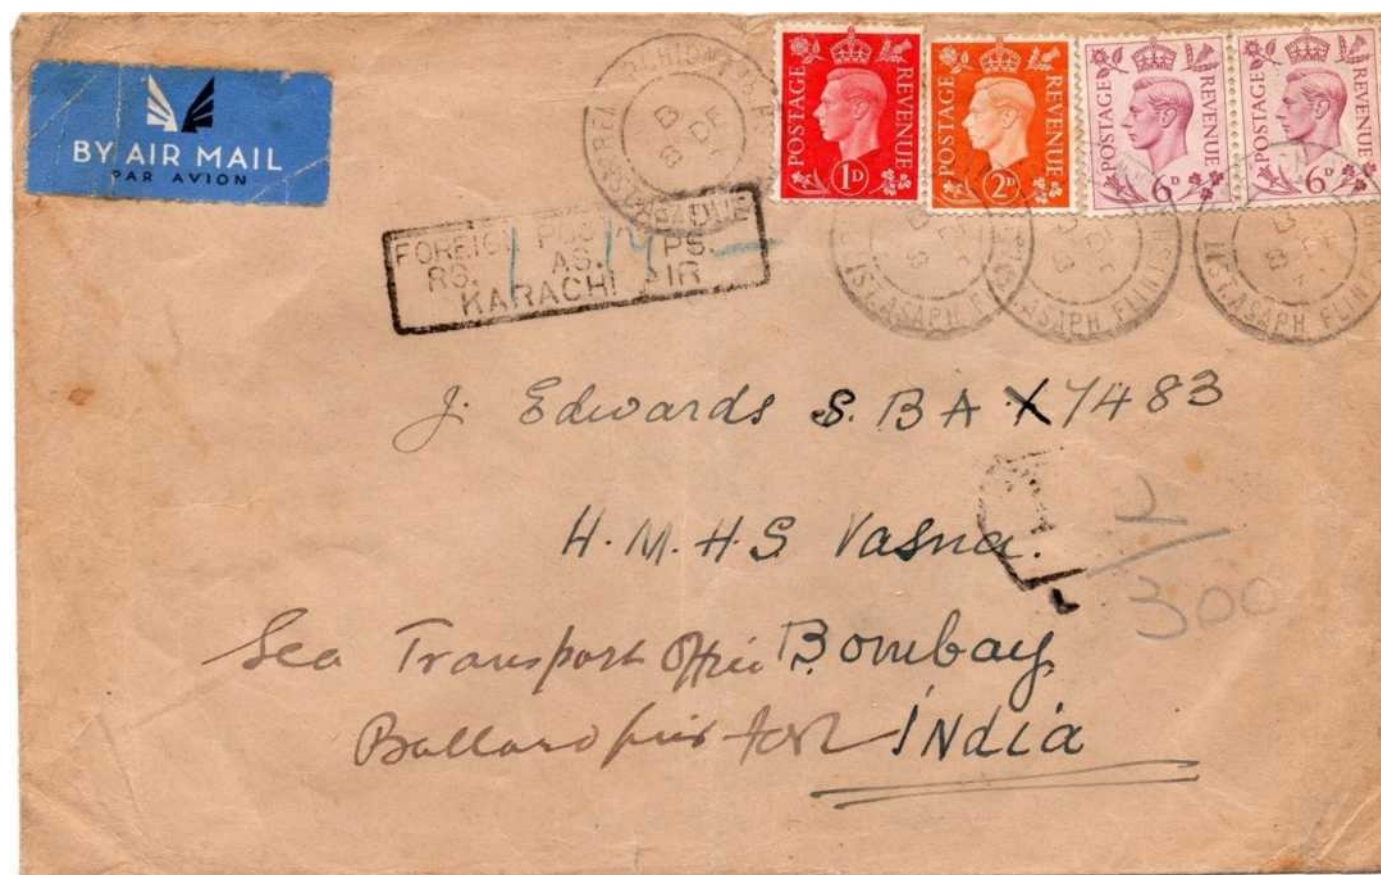 BY AIR MAIL
PAR AVION
POSTAGE REVENUE
1D
POSTAGE REVENUE
2D
POSTAGE REVENUE
6D
POSTAGE REVENUE
6D
FOREIGN POSTAGE DUE
RS. 1 AS. 14 PS. —
KARACHI AIR
ST. ASAPH FLINTSH
ST. ASAPH FLINTSH
ST. ASAPH FLINTSH
J. Edwards S. B A X7483
H.M.H.S Vasna.
Sea Transport Office Bombay
Ballard pier India
2/300